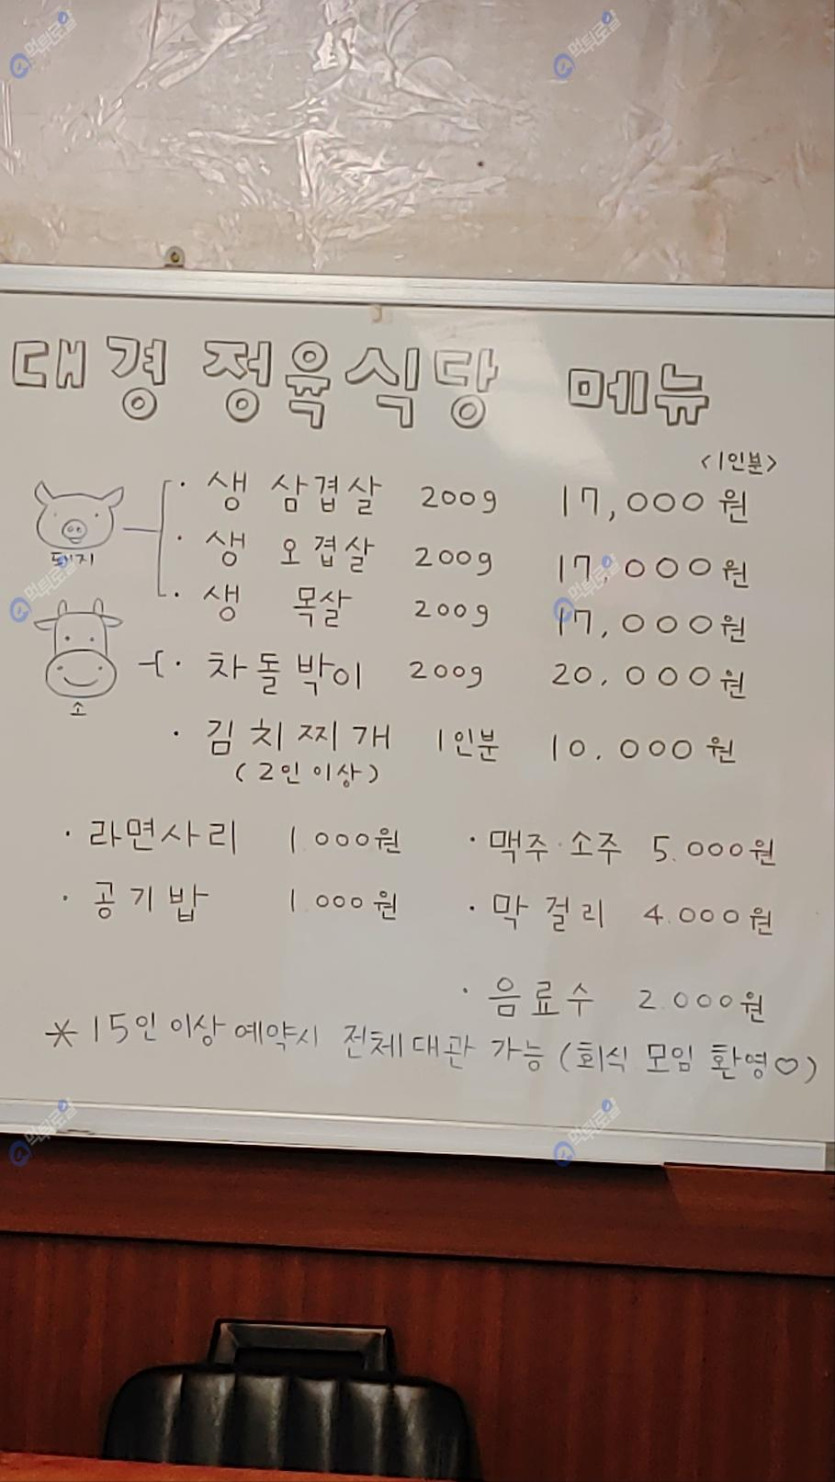 대경 정육식당 메뉴
<1인분>
· 생 삼겹살 200g 17,000원
· 생 오겹살 200g 17,000원
돼지
· 생 목살 200g 17,000원
· 차돌박이 200g 20,000원
소
· 김치찌개 1인분 10,000원
(2인 이상)
· 라면사리 1,000원 · 맥주·소주 5,000원
· 공기밥 1,000원 · 막걸리 4,000원
· 음료수 2,000원
* 15인 이상 예약시 전체대관 가능 (회식 모임 환영♡)